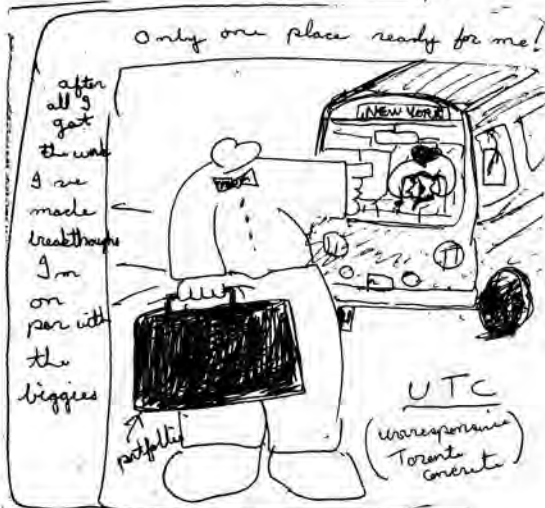 Only one place ready for me!
after
all I
got
the work
I've
made
breakthroughs
I'm
on
par with
the
biggies
NEW YORK
portfolio
UTC
(unresponsive
Toronto
concrete)